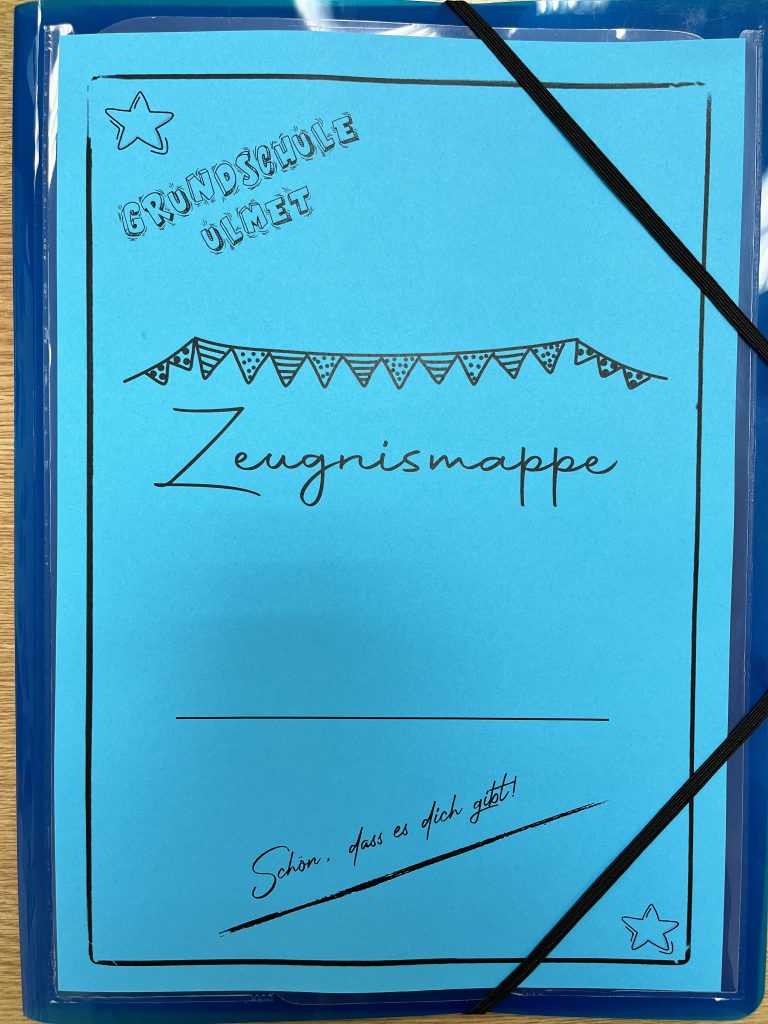 GRUNDSCHULE
ULMET
Zeugnismappe
Schön, dass es dich gibt!